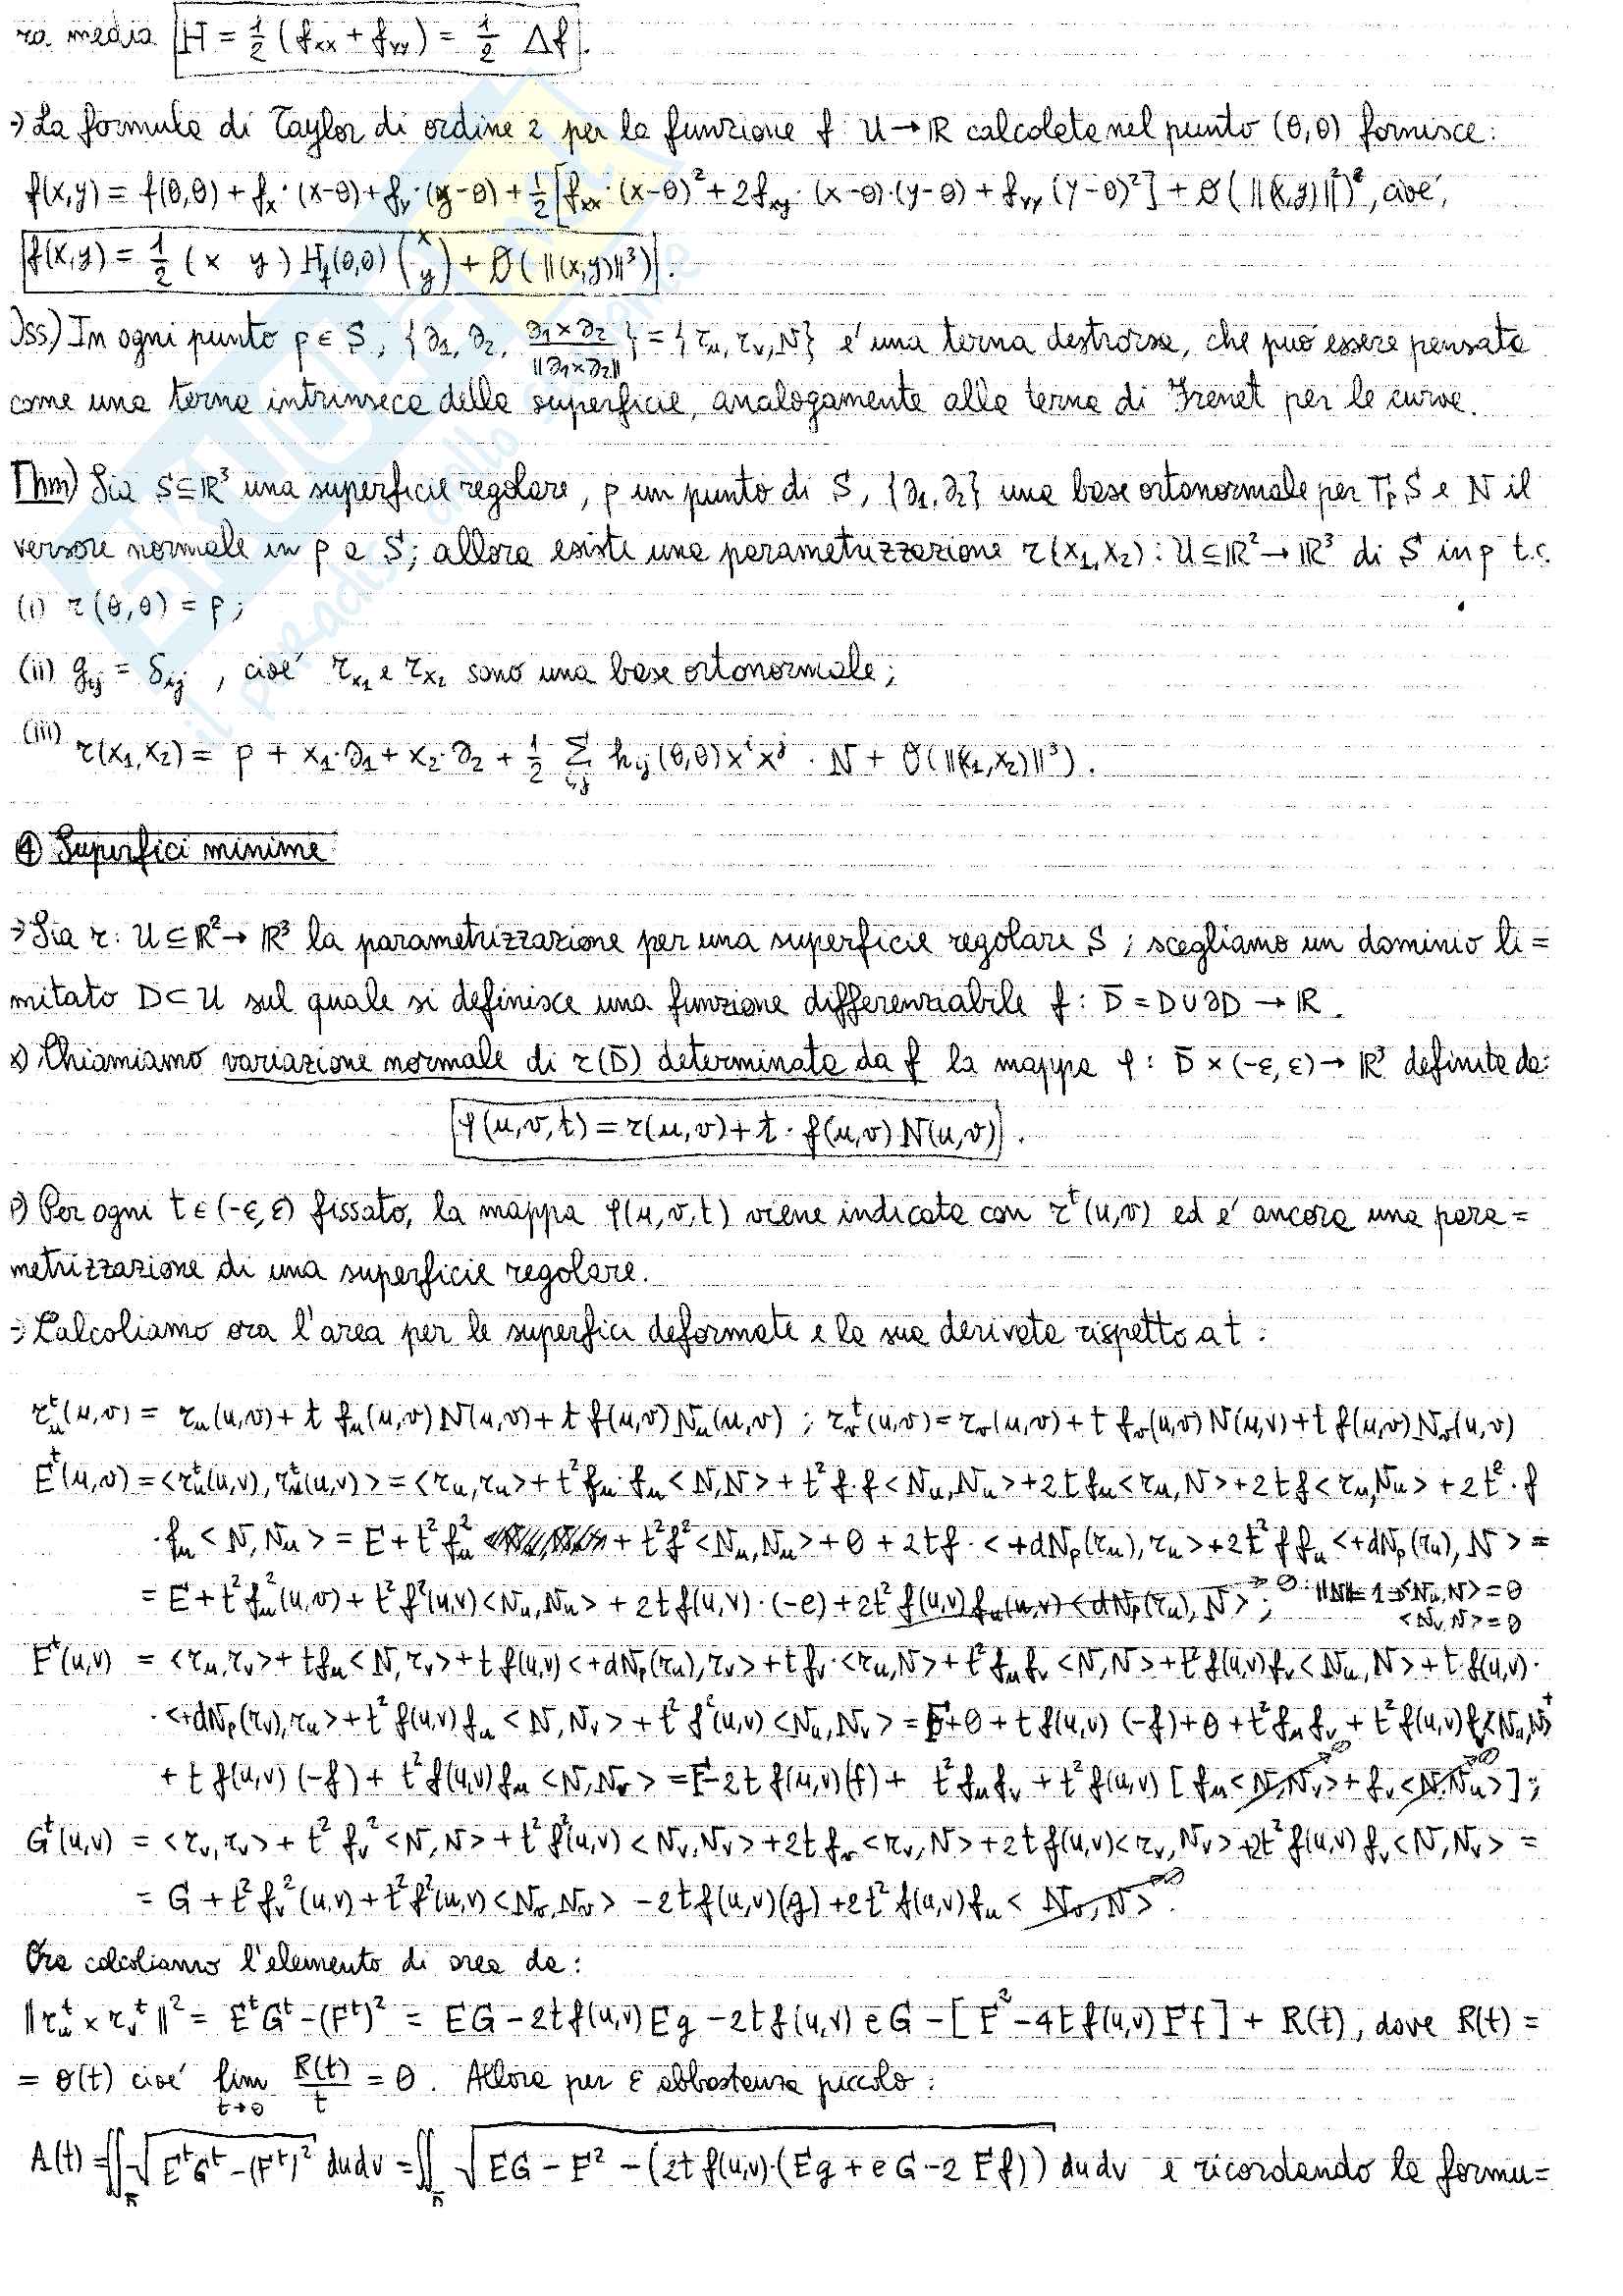 ra media H = 1/2 (fxx + fyy) = 1/2 Δf.
→) La formula di Taylor di ordine 2 per la funzione f: U → ℝ calcolata nel punto (0,0) fornisce:
f(x,y) = f(0,0) + fx·(x-0) + fy·(y-0) + 1/2 [fxx·(x-0)² + 2fxy·(x-0)·(y-0) + fyy (y-0)²] + O(‖(x,y)‖²), cioè,
f(x,y) = 1/2 (x y) Hf(0,0) (x y) + O(‖(x,y)‖³).
Oss) In ogni punto p ∈ S, {∂1, ∂2, ∂1×∂2/‖∂1×∂2‖} = {ru, rv, N} e' una terna destrorsa, che può essere pensata
come una terna intrinseca della superficie, analogamente alla terna di Frenet per le curve.
Thm) Sia S⊆ℝ³ una superficie regolare, p un punto di S, {∂1, ∂2} una base ortonormale per TpS e N il
versore normale in p a S; allora esiste una parametrizzazione r(x1,x2): U⊆ℝ² → ℝ³ di S in p t.c.
(i) r(0,0) = p;
(ii) gij = δij , cioe' rx1 e rx2 sono una base ortonormale;
(iii) r(x1,x2) = p + x1·∂1 + x2·∂2 + 1/2 Σi,j hij(0,0)xⁱxʲ · N + O(‖(x1,x2)‖³).
④ Superfici minime
→) Sia r: U⊆ℝ² → ℝ³ la parametrizzazione per una superficie regolare S ; scegliamo un dominio li=
mitato D⊂U sul quale si definisce una funzione differenziabile f: D̄ = D∪∂D → ℝ.
x) Chiamiamo variazione normale di r(D̄) determinata da f la mappa φ: D̄×(-ε,ε) → ℝ³ definita da:
φ(u,v,t) = r(u,v) + t·f(u,v)N(u,v).
P) Per ogni t∈(-ε,ε) fissato, la mappa φ(u,v,t) viene indicata con rᵗ(u,v) ed e' ancora una para=
metrizzazione di una superficie regolare.
→) Calcoliamo ora l'area per le superfici deformate e la sua derivata rispetto a t :
rᵗu(u,v) = ru(u,v) + t fu(u,v)N(u,v) + t f(u,v)Nu(u,v) ; rᵗv(u,v) = rv(u,v) + t fv(u,v)N(u,v) + t f(u,v)Nv(u,v)
Eᵗ(u,v) = <rᵗu(u,v), rᵗu(u,v)> = <ru,ru> + t²fu·fu<N,N> + t²f·f<Nu,Nu> + 2tfu<ru,N> + 2tf<ru,Nu> + 2t²·f
·fu<N,Nu> = E + t²fu² + t²f²<Nu,Nu> + 0 + 2tf·<+dNp(ru),ru> + 2t²ffu<+dNp(ru),N> =
= E + t²fu²(u,v) + t²f²(u,v)<Nu,Nu> + 2tf(u,v)·(-e) + 2t²f(u,v)fu(u,v)<dNp(ru),N> → 0 ; ‖N‖=1 ⇒ <Nu,N> = 0
<Nv,N> = 0
Fᵗ(u,v) = <ru,rv> + tfu<N,rv> + t f(u,v)<+dNp(ru),rv> + tfv·<ru,N> + t²fufv<N,N> + t²f(u,v)fv<Nu,N> + t·f(u,v)·
·<+dNp(rv),ru> + t²f(u,v)fu<N,Nv> + t²f²(u,v)<Nu,Nv> = F + 0 + tf(u,v)(-f) + 0 + t²fufv + t²f(u,v)fv<Nu,N> +
+ t f(u,v)(-f) + t²f(u,v)fu<N,Nv> = F - 2t f(u,v)(f) + t²fufv + t²f(u,v)[fu<N,Nv> → 0 + fv<N,Nu> → 0];
Gᵗ(u,v) = <rv,rv> + t²fv²<N,N> + t²f²(u,v)<Nv,Nv> + 2tfv<rv,N> + 2tf(u,v)<rv,Nv> + 2t²f(u,v)fv<N,Nv> =
= G + t²fv²(u,v) + t²f²(u,v)<Nv,Nv> - 2tf(u,v)(g) + 2t²f(u,v)fu<Nv,N> → 0.
Ora calcoliamo l'elemento di area da:
‖rᵗu × rᵗv‖² = EᵗGᵗ - (Fᵗ)² = EG - 2tf(u,v)Eg - 2tf(u,v)eG - [F² - 4tf(u,v)Ff] + R(t), dove R(t) =
= o(t) cioe' lim t→0 R(t)/t = 0. Allora per ε abbastanza piccolo:
A(t) = ∬D̄ √(EᵗGᵗ - (Fᵗ)²) dudv = ∬D̄ √(EG - F² - (2tf(u,v)·(Eg + eG - 2Ff))) dudv e ricordando la formu=